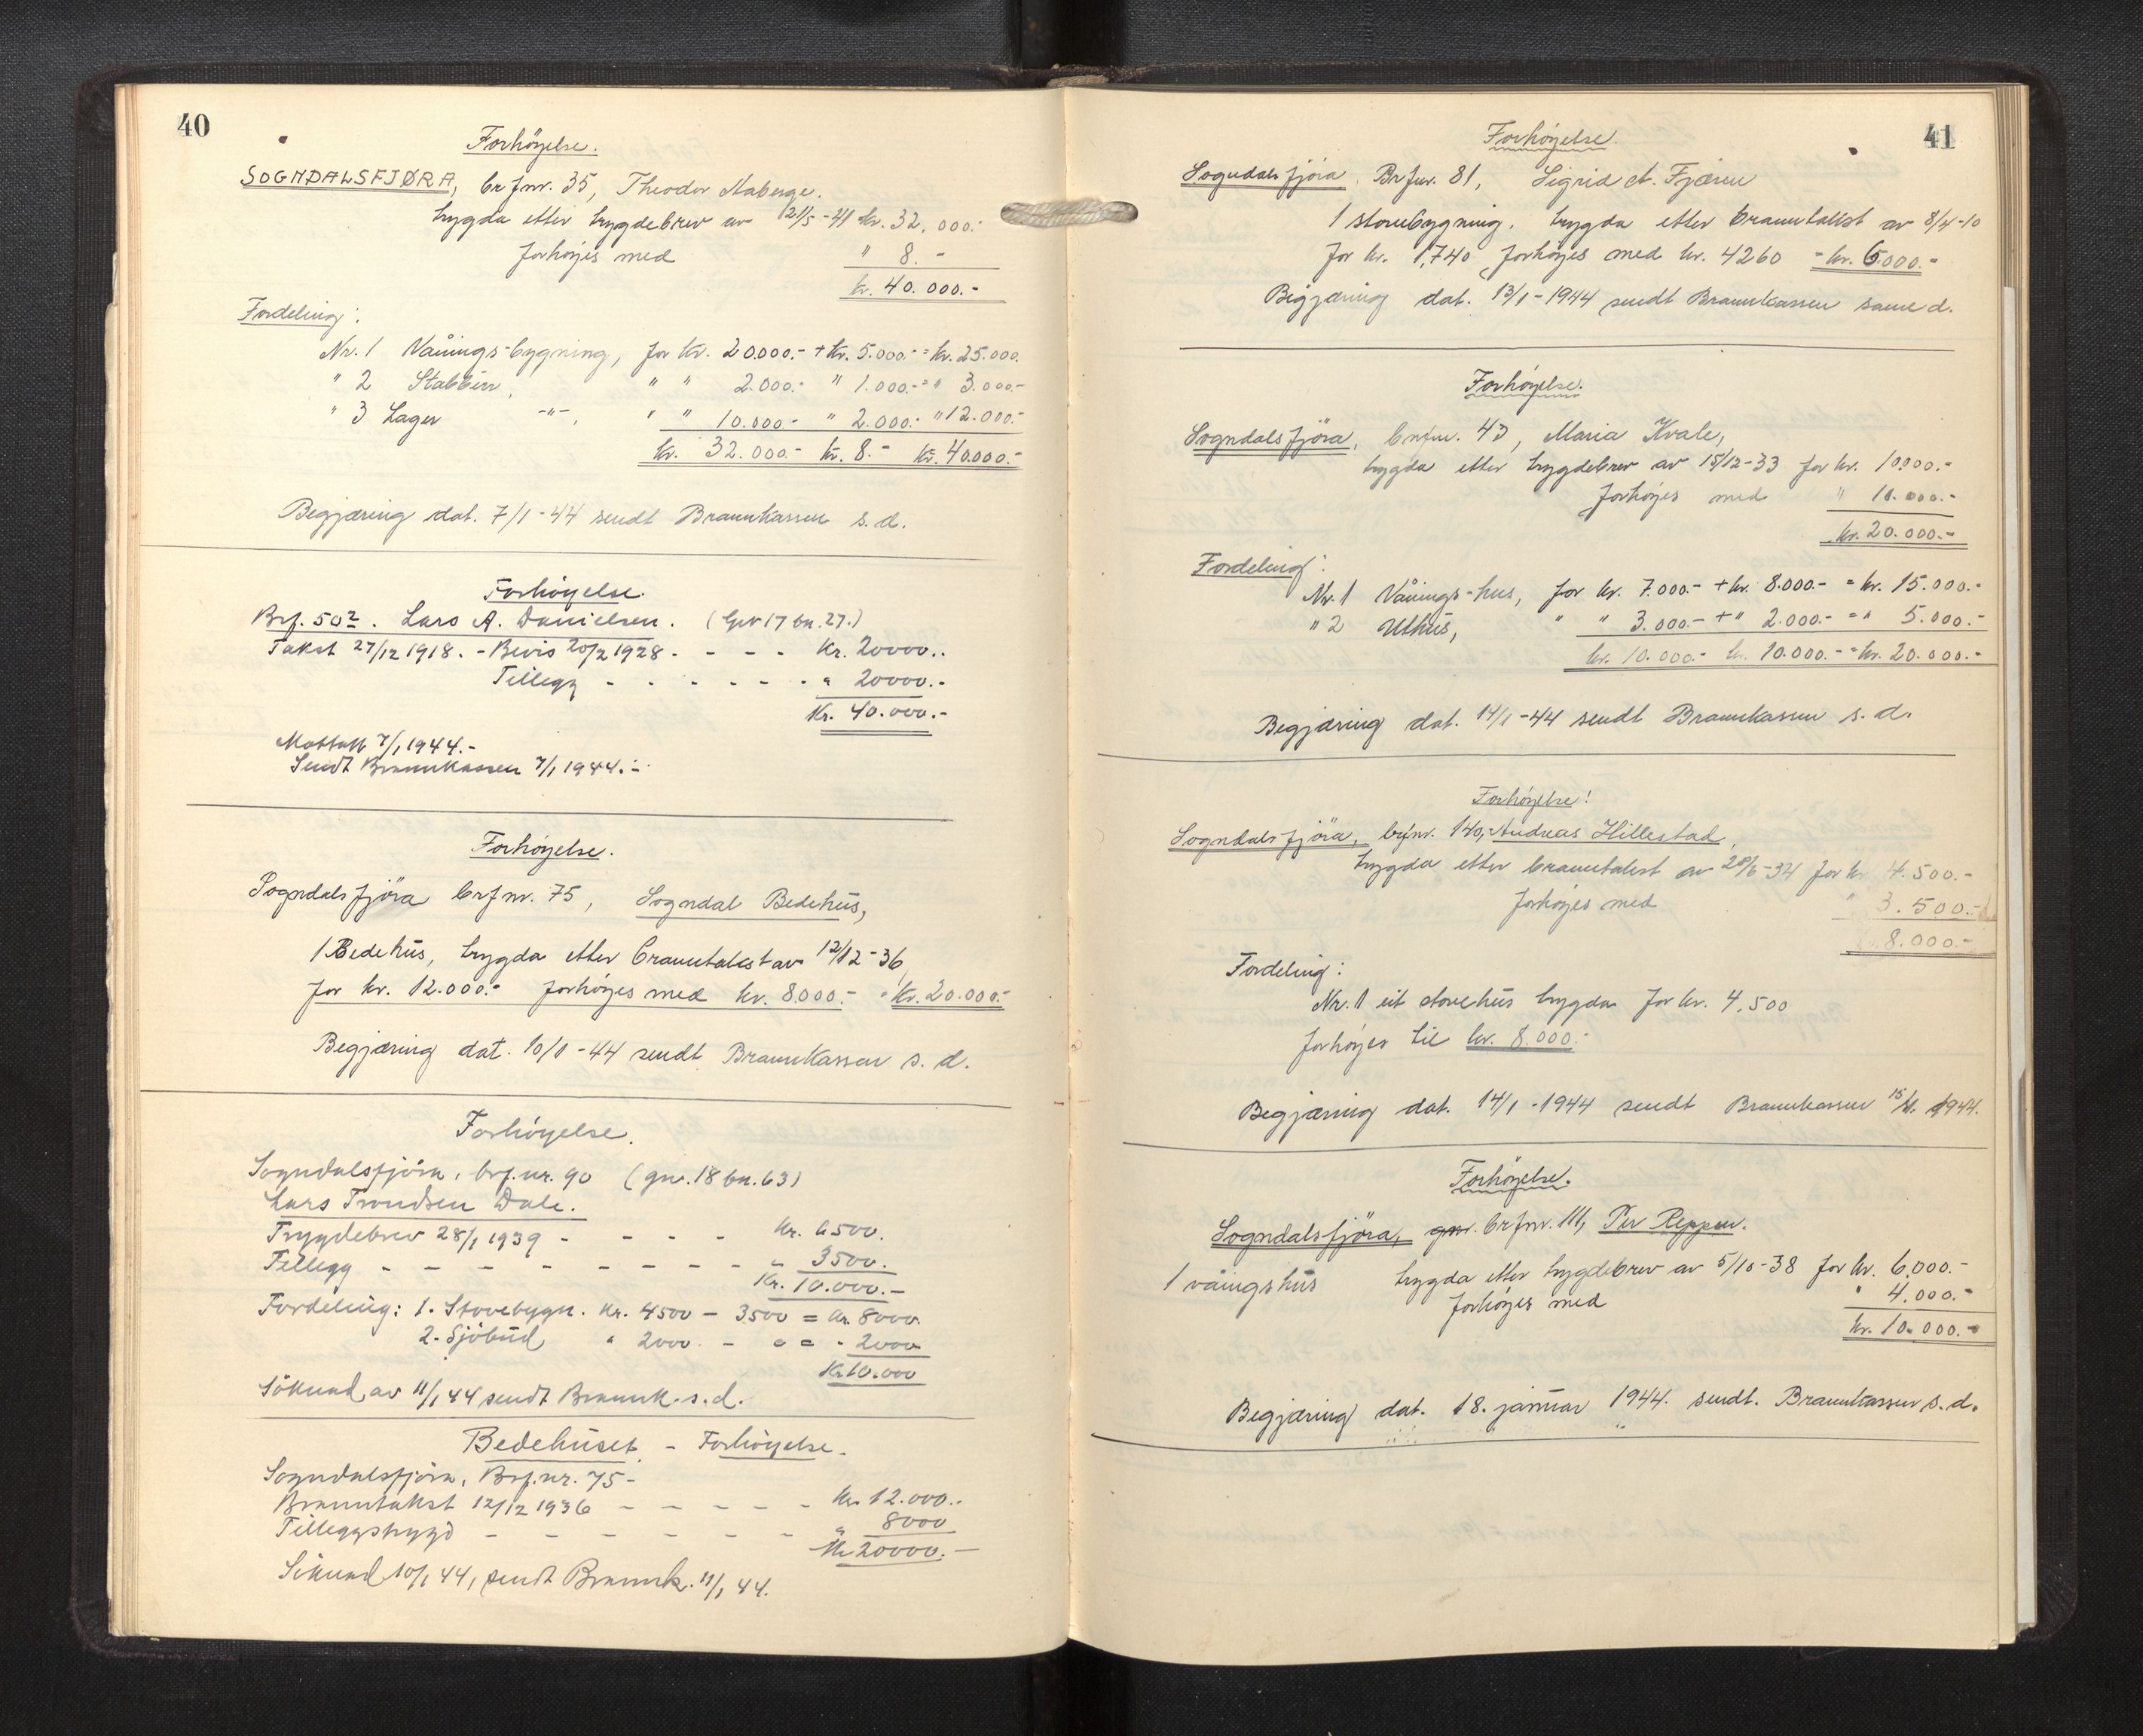 40
Forhöyelse.
SOGNDALSFJØRA, brfnr. 35, Theodor Naberge.
trygda etter trygdebrev av 21/5-41 kr. 32.000.-
forhöyes med " 8.-
kr. 40.000.-
Fordeling:
Nr. 1 Våningsbygning, for kr. 20.000.- + kr. 5.000.- = kr. 25.000.
" 2 Stabburr, " " 2.000.- " 1.000.- = " 3.000.-
" 3 Lager -"-, " " 10.000- " 2.000.- " 12.000.-
kr. 32.000.- kr. 8.- kr. 40.000.-
Begjæring dat. 7/1-44 sendt Brannkassen s.d.
Forhöyelse.
Brf. 50². Lars A. Danielsen. (Gnr 17 bn. 27.)
Takst 27/12 1918. - Bevis 20/2 1928 - - - - Kr. 20000..
Tillegg - - - - - - - " 20000.-
Kr. 40.000.-
Mottatt 7/1 1944.-
Sendt Brannkassen 7/1 1944.-
Forhöyelse.
Sogndalsfjöra brfnr. 75, Sogndal Bedehus,
1 Bedehus, trygda etter branntakst av 12/12-36
for kr. 12.000.- forhöyes med kr. 8.000.- = kr. 20.000.-
Begjæring dat. 10/1-44 sendt Brannkassen s.d.
Forhöyelse.
Sogndalsfjöra, brf.nr. 90 (gnr. 18 bn. 63)
Lars Trondsen Dale.
Trygdebrev 28/1 1939 - - - - Kr. 6500.
Tillegg - - - - - - - - - " 3500.
Kr. 10.000.-
Fordeling: 1. Stovebygn. Kr. 4500 - 3500 = Kr. 8000.
2. Sjöbud " 2000. - " = - 2000
Kr. 10.000
Söknad av 11/1 44 sendt Brannk. s.d.
Bedehuset - Forhöyelse -
Sogndalsfjöra, Brf.nr. 75-
Branntakst 12/12 1936 - - - - - Kr. 12.000..
Tilleggstrygd - - - - - - " 8000
Kr 20000.-
Söknad 10/1 44, sendt Brannk. 11/1 44.
41
Forhöyelse.
Sogndalsfjöra. Brfnr. 81, Sigrid A. Fjæren
1 stovebygning. trygda etter branntakst av 8/4-10
for kr. 1,740 forhöyes med kr. 4260 = kr. 6.000.-
Begjæring dat. 13/1-1944 sendt Brannkassen same d.
Forhöyelse.
Sogndalsfjöra, brfnr. 43, Maria Kvale,
trygda etter trygdebrev av 15/12-33 for kr. 10.000.-
forhöyes med " 10.000.-
kr. 20.000.-
Fordeling:
Nr. 1 Vånings-hus, for kr. 7.000.- + kr. 8.000.- = kr. 15.000.-
" 2 Uthus, " " 3.000.- + " 2.000.- = " 5.000.-
kr. 10.000.- kr. 10.000.- = kr. 20.000.-
Begjæring dat. 14/1-44 sendt Brannkassen s.d.
Forhöyelse!
Sogndalsfjöra, brfnr. 140, Andreas Hillestad,
trygda etter branntakst av 28/6-34 for kr 4.500.-
forhöyes med " 3.500.-
8.000.-
Fordeling:
Nr. 1 eit stovehus trygda for kr. 4,500
forhöyes til kr. 8.000.-
Begjæring dat. 14/1-1944 sendt Brannkassen 15/1. 1944.
Forhöyelse.
Sogndalsfjöra, gnr. brfnr. 111, Per Reppen.
1 våningshus trygda etter trygdebrev av 5/10-38 for kr. 6.000.-
forhöyes med " 4.000.-
kr. 10.000.-
Begjæring dat. 18. januar 1944. sendt. Brannkassen s.d.